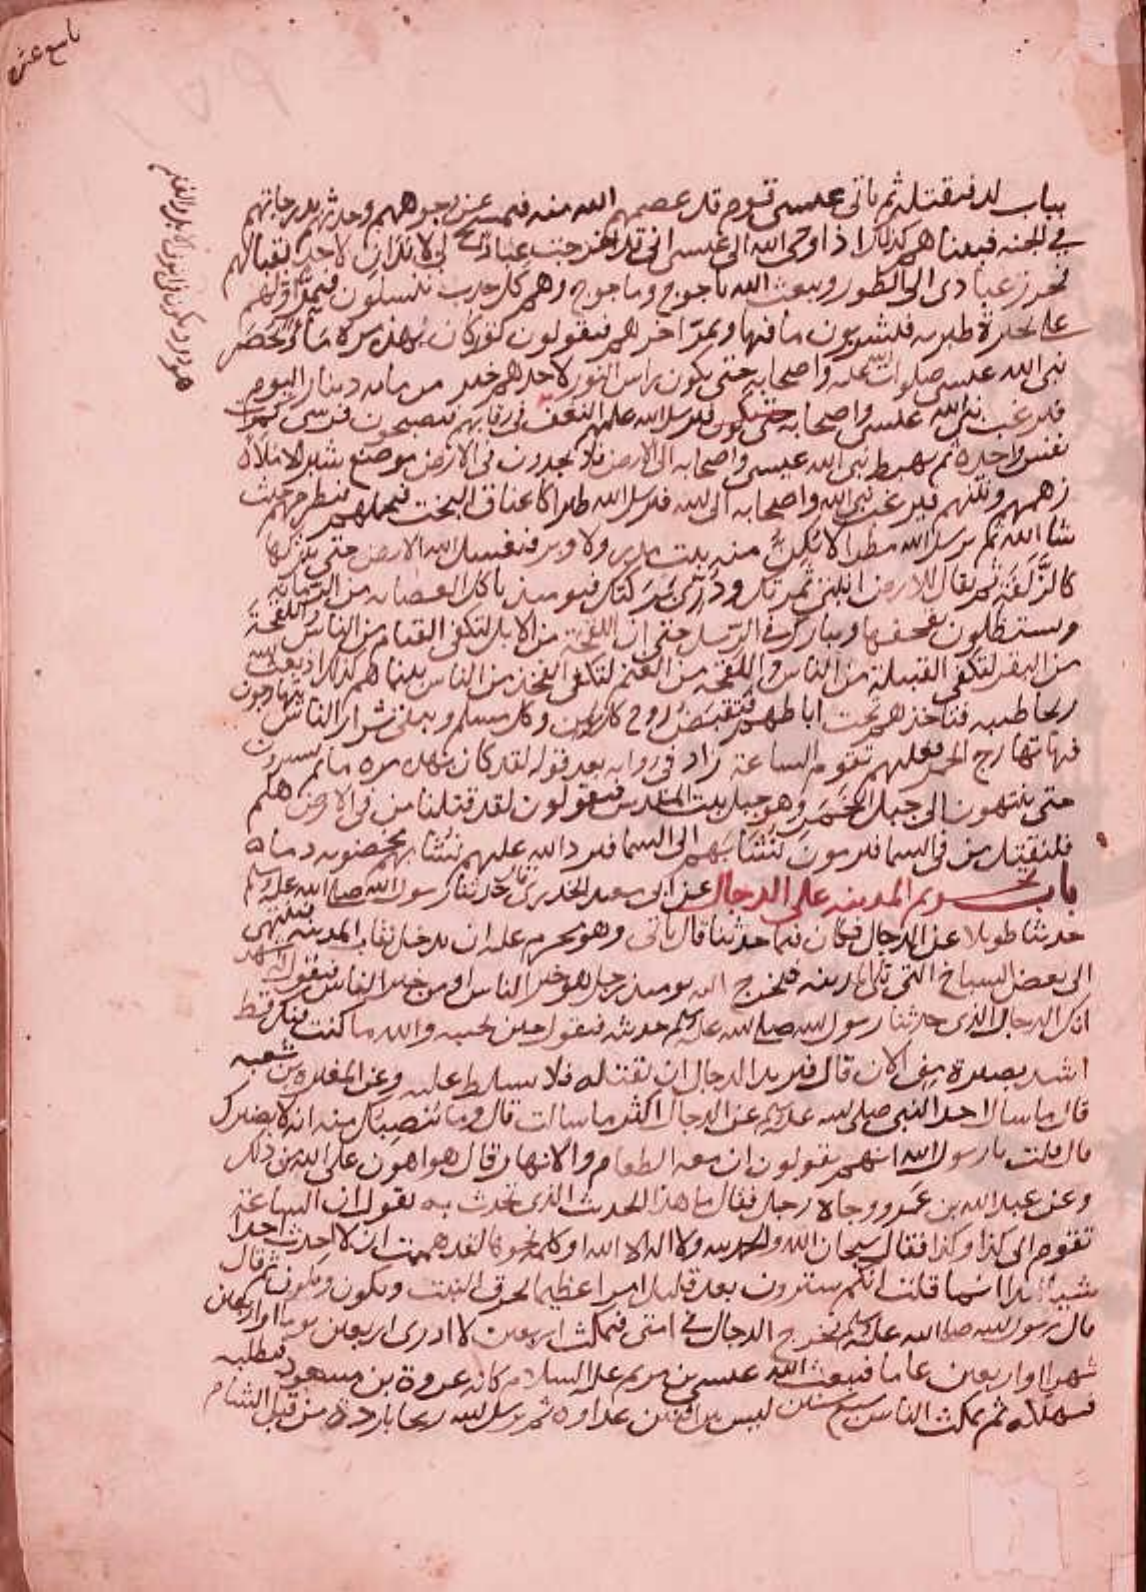 تاسع عشر
بباب لد فيقتله ثم ياتي عيسى قوم قد عصمهم الله منه فيمسح عن وجوههم ويحدثهم بدرجاتهم
في الجنه فبينما هم كذلك اذ اوحى الله الى عيسى اني قد اخرجت عبادا لي لا يدان لاحد بقتالهم
فحرز عبادي الى الطور ويبعث الله ياجوج وماجوج وهم من كل حدب ينسلون فيمر اولهم
على بحيرة طبريه فيشربون ما فيها ويمر اخرهم فيقولون لقد كان بهذه مرة ماء ويحصر
نبي الله عيسى صلوات الله عليه واصحابه حتى يكون راس الثور لاحدهم خير من مايه دينار اليوم
فيرغب نبي الله عيسى واصحابه فيرسل الله عليهم النغف في رقابهم فيصبحون فرسى كموت
نفس واحدة ثم يهبط نبي الله عيسى واصحابه الى الارض فلا يجدون في الارض موضع شبر الا ملاه
زهمهم ونتنهم فيرغب نبي الله واصحابه الى الله فيرسل الله طيرا كاعناق البخت فتحملهم فتطرحهم حيث
شا الله ثم يرسل الله مطرا لا يكن منه بيت مدر ولا وبر فيغسل الارض حتى يتركها
كالزلفة ثم يقال للارض انبتي ثمرتك وردي بركتك فيومئذ تاكل العصابه من الرمانة
ويستظلون بقحفها ويبارك في الرسل حتى ان اللقحة من الابل لتكفي الفئام من الناس واللقحة
من البقر لتكفي القبيلة من الناس واللقحه من الغنم لتكفي الفخذ من الناس بينما هم كذلك اذ بعث الله
ريحا طيبه فتاخذهم تحت اباطهم فتقبض روح كل مومن وكل مسلم ويبقى شرار الناس يتهارجون
فيها تهارج الحمر فعليهم تقوم الساعة زاد في روايه بعد قوله لقد كان بهذه مرة ما ثم يسيرون
حتى ينتهون الى جبل الخمر وهو جبل بيت المقدس فيقولون لقد قتلنا من في الارض هلم
فلنقتل من في السما فيرمون بنشابهم الى السما فيرد الله عليهم نشابهم مخضوبه دما
باب تحريم المدينه على الدجال عن ابي سعيد الخدري قال حدثنا رسول الله صلى الله عليه وسلم
حديثا طويلا عن الدجال فكان فيما حدثنا قال ياتي وهو محرم عليه ان يدخل نقاب المدينه فينتهي
الى بعض السباخ التي تلي المدينه فيخرج اليه يومئذ رجل هو خير الناس او من خير الناس فيقول اشهد
انك الدجال الذي حدثنا رسول الله صلى الله عليه وسلم حديثه فيقول حين يحييه والله ما كنت فيك قط
اشد بصيرة مني الان قال فيريد الدجال ان يقتله فلا يسلط عليه وعن المغيرة بن شعبه
قال ما سال احد النبي صلى الله عليه وسلم عن الدجال اكثر ما سالت قال وما ينصبك منه انه لا يضرك
قال قلت يا رسول الله انهم يقولون ان معه الطعام والانهار قال هو اهون على الله من ذلك
وعن عبد الله بن عمرو وجاه رجل فقال ما هذا الحديث الذي تحدث به تقول ان الساعة
تقوم الى كذا وكذا فقال سبحان الله ولا اله الا الله او كلمة نحوها لقد هممت ان لا احدث احدا
شيئا ابدا انما قلت انكم سترون بعد قليل امرا عظيما يحرق البيت ويكون ويكون ثم قال
قال رسول الله صلى الله عليه وسلم يخرج الدجال في امتي فيمكث اربعين لا ادري اربعين يوما او اربعين
شهرا او اربعين عاما فيبعث الله عيسى بن مريم عليه السلام كانه عروة بن مسعود فيطلبه
فيهلكه ثم يمكث الناس سبع سنين ليس بين اثنين عداوة ثم يرسل الله ريحا باردة من قبل الشام